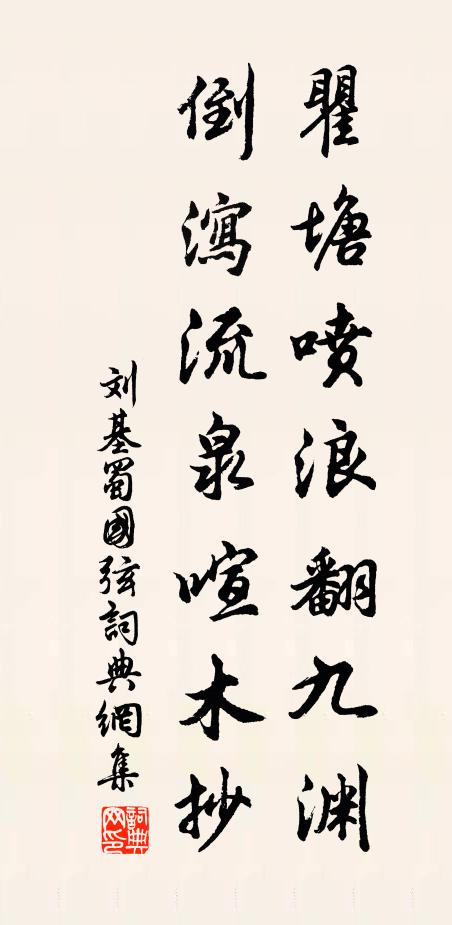 瞿塘喷浪翻九渊
倒瀉流泉喧木抄
刘基蜀國弦詞典網集
詞典网印